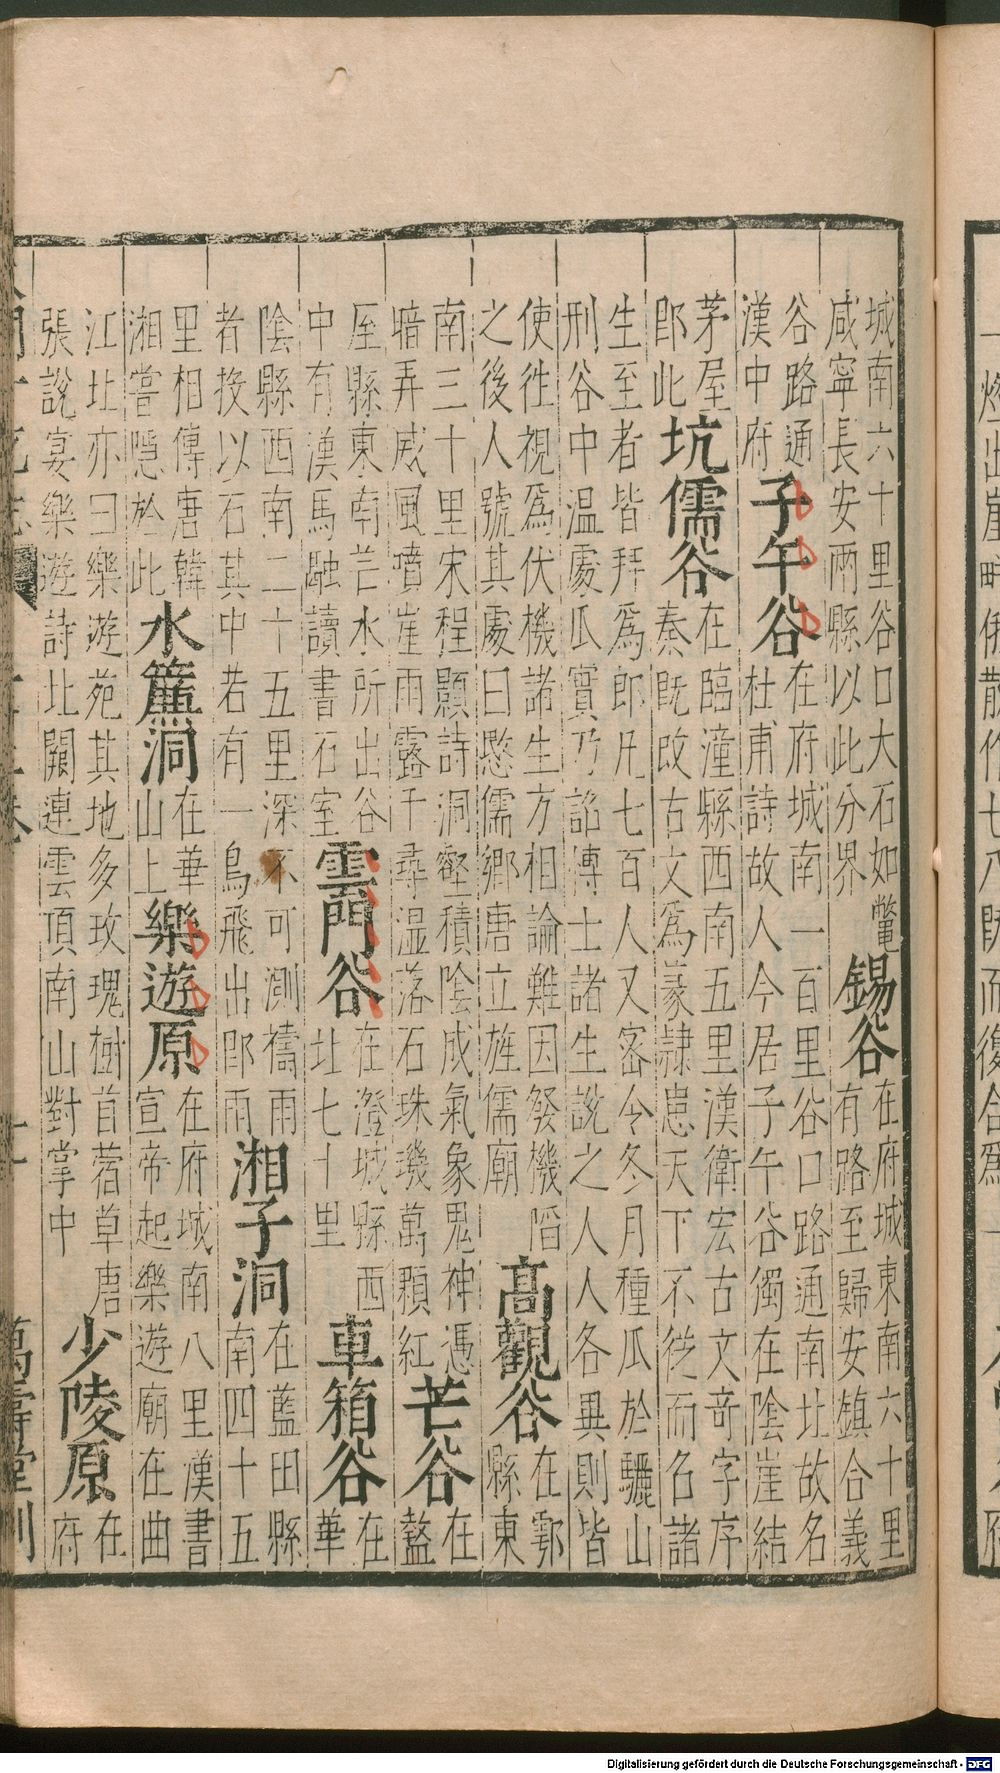 城南六十里谷口大石如鼈咸寧長安兩縣以此分界錫谷在府城東南六十里有路至歸安鎮合義
谷路通漢中府子午谷在府城南一百里谷口路通南北故名杜甫詩故人今居子午谷獨在陰崖結
茅屋郎此坑儒谷在臨潼縣西南五里漢衛宏古文奇字序秦既改古文爲篆隸患天下不從而名諸
生至者皆拜爲郎凡七百人又密令冬月種瓜於驪山刑谷中温處瓜實乃詔博士諸生說之人人各異則皆
使往視爲伏機諸生方相論難因發機䧟之後人號其處曰愍儒鄉唐立旌儒廟高觀谷在鄠縣東
南三十里宋程顥詩洞壑積陰成氣象鬼神憑暗弄威風噴崖雨露千尋湿落石珠璣萬顆紅芒谷在盩
厔縣東南芒水所出谷中有漢馬融讀書石室雲門谷在澄城縣西北七十里車箱谷在華
陰縣西南二十五里深不可測禱雨者投以石其中若有一鳥飛出即雨湘子洞在藍田縣南四十五
里相傳唐韓湘嘗隱於此水簾洞在華山上樂遊原在府城南八里漢書宣帝起樂遊廟在曲
江北亦曰樂遊苑其地多玫瑰樹首蓿草唐張說宴樂遊詩北闕連雲頂南山對掌中少陵原在府
萬壽堂刋
Digitalisierung gefördert durch die Deutsche Forschungsgemeinschaft - DFG